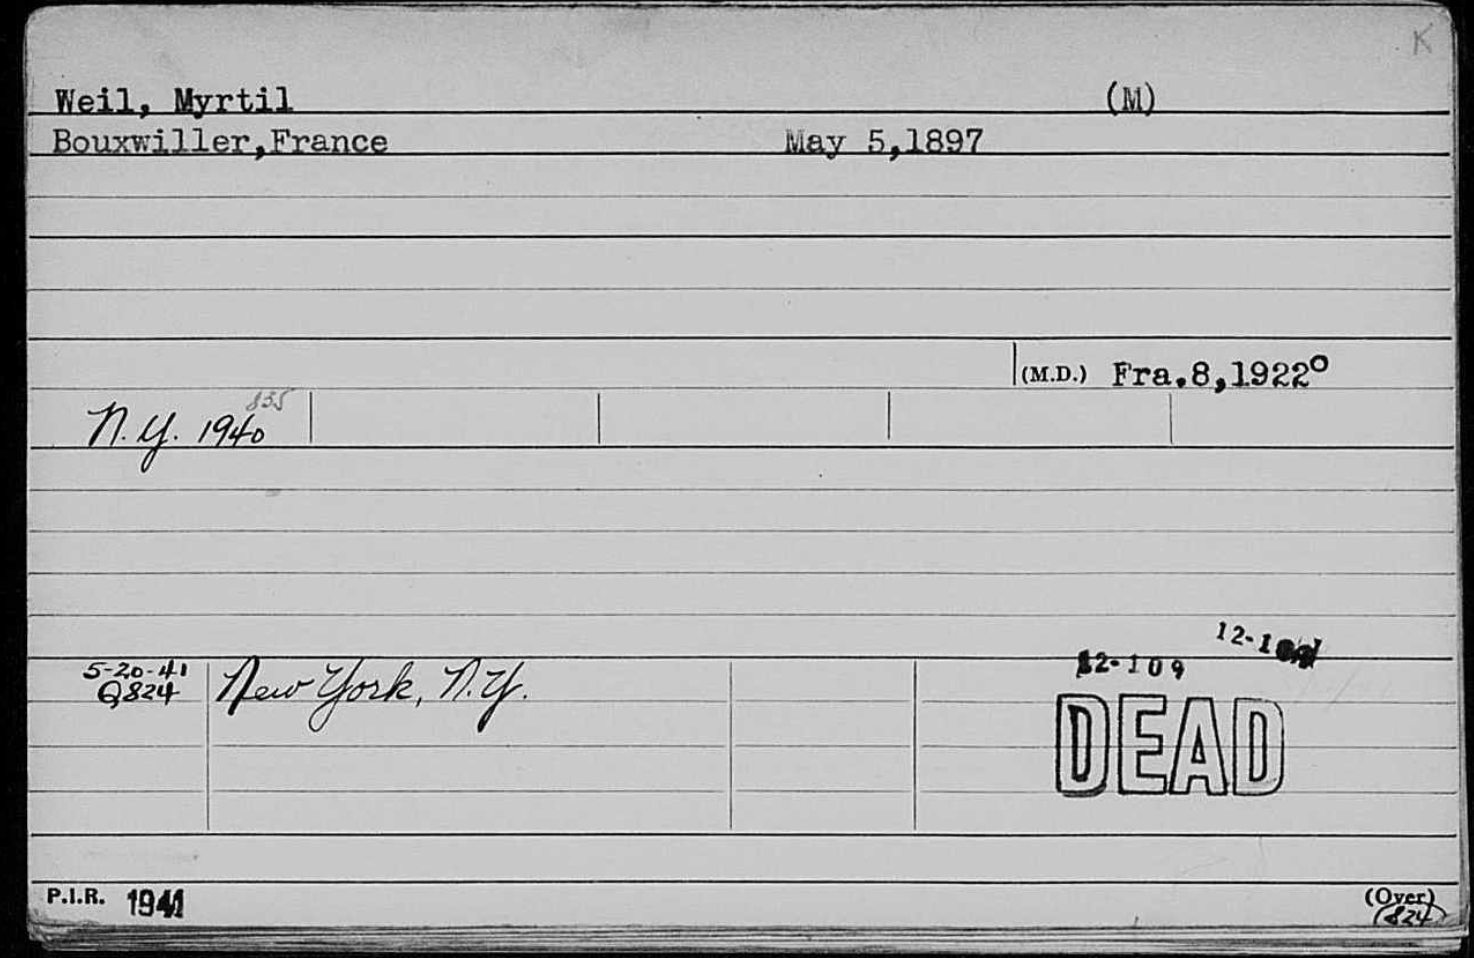 K
Weil, Myrtil (M)
Bouxwiller,France May 5,1897
(M.D.) Fra.8,1922°
835
N.Y. 1940
12-1
5-20-41 12-109
Q824 New York, N.Y.
DEAD
P.I.R. 1941 (Over)
(824)